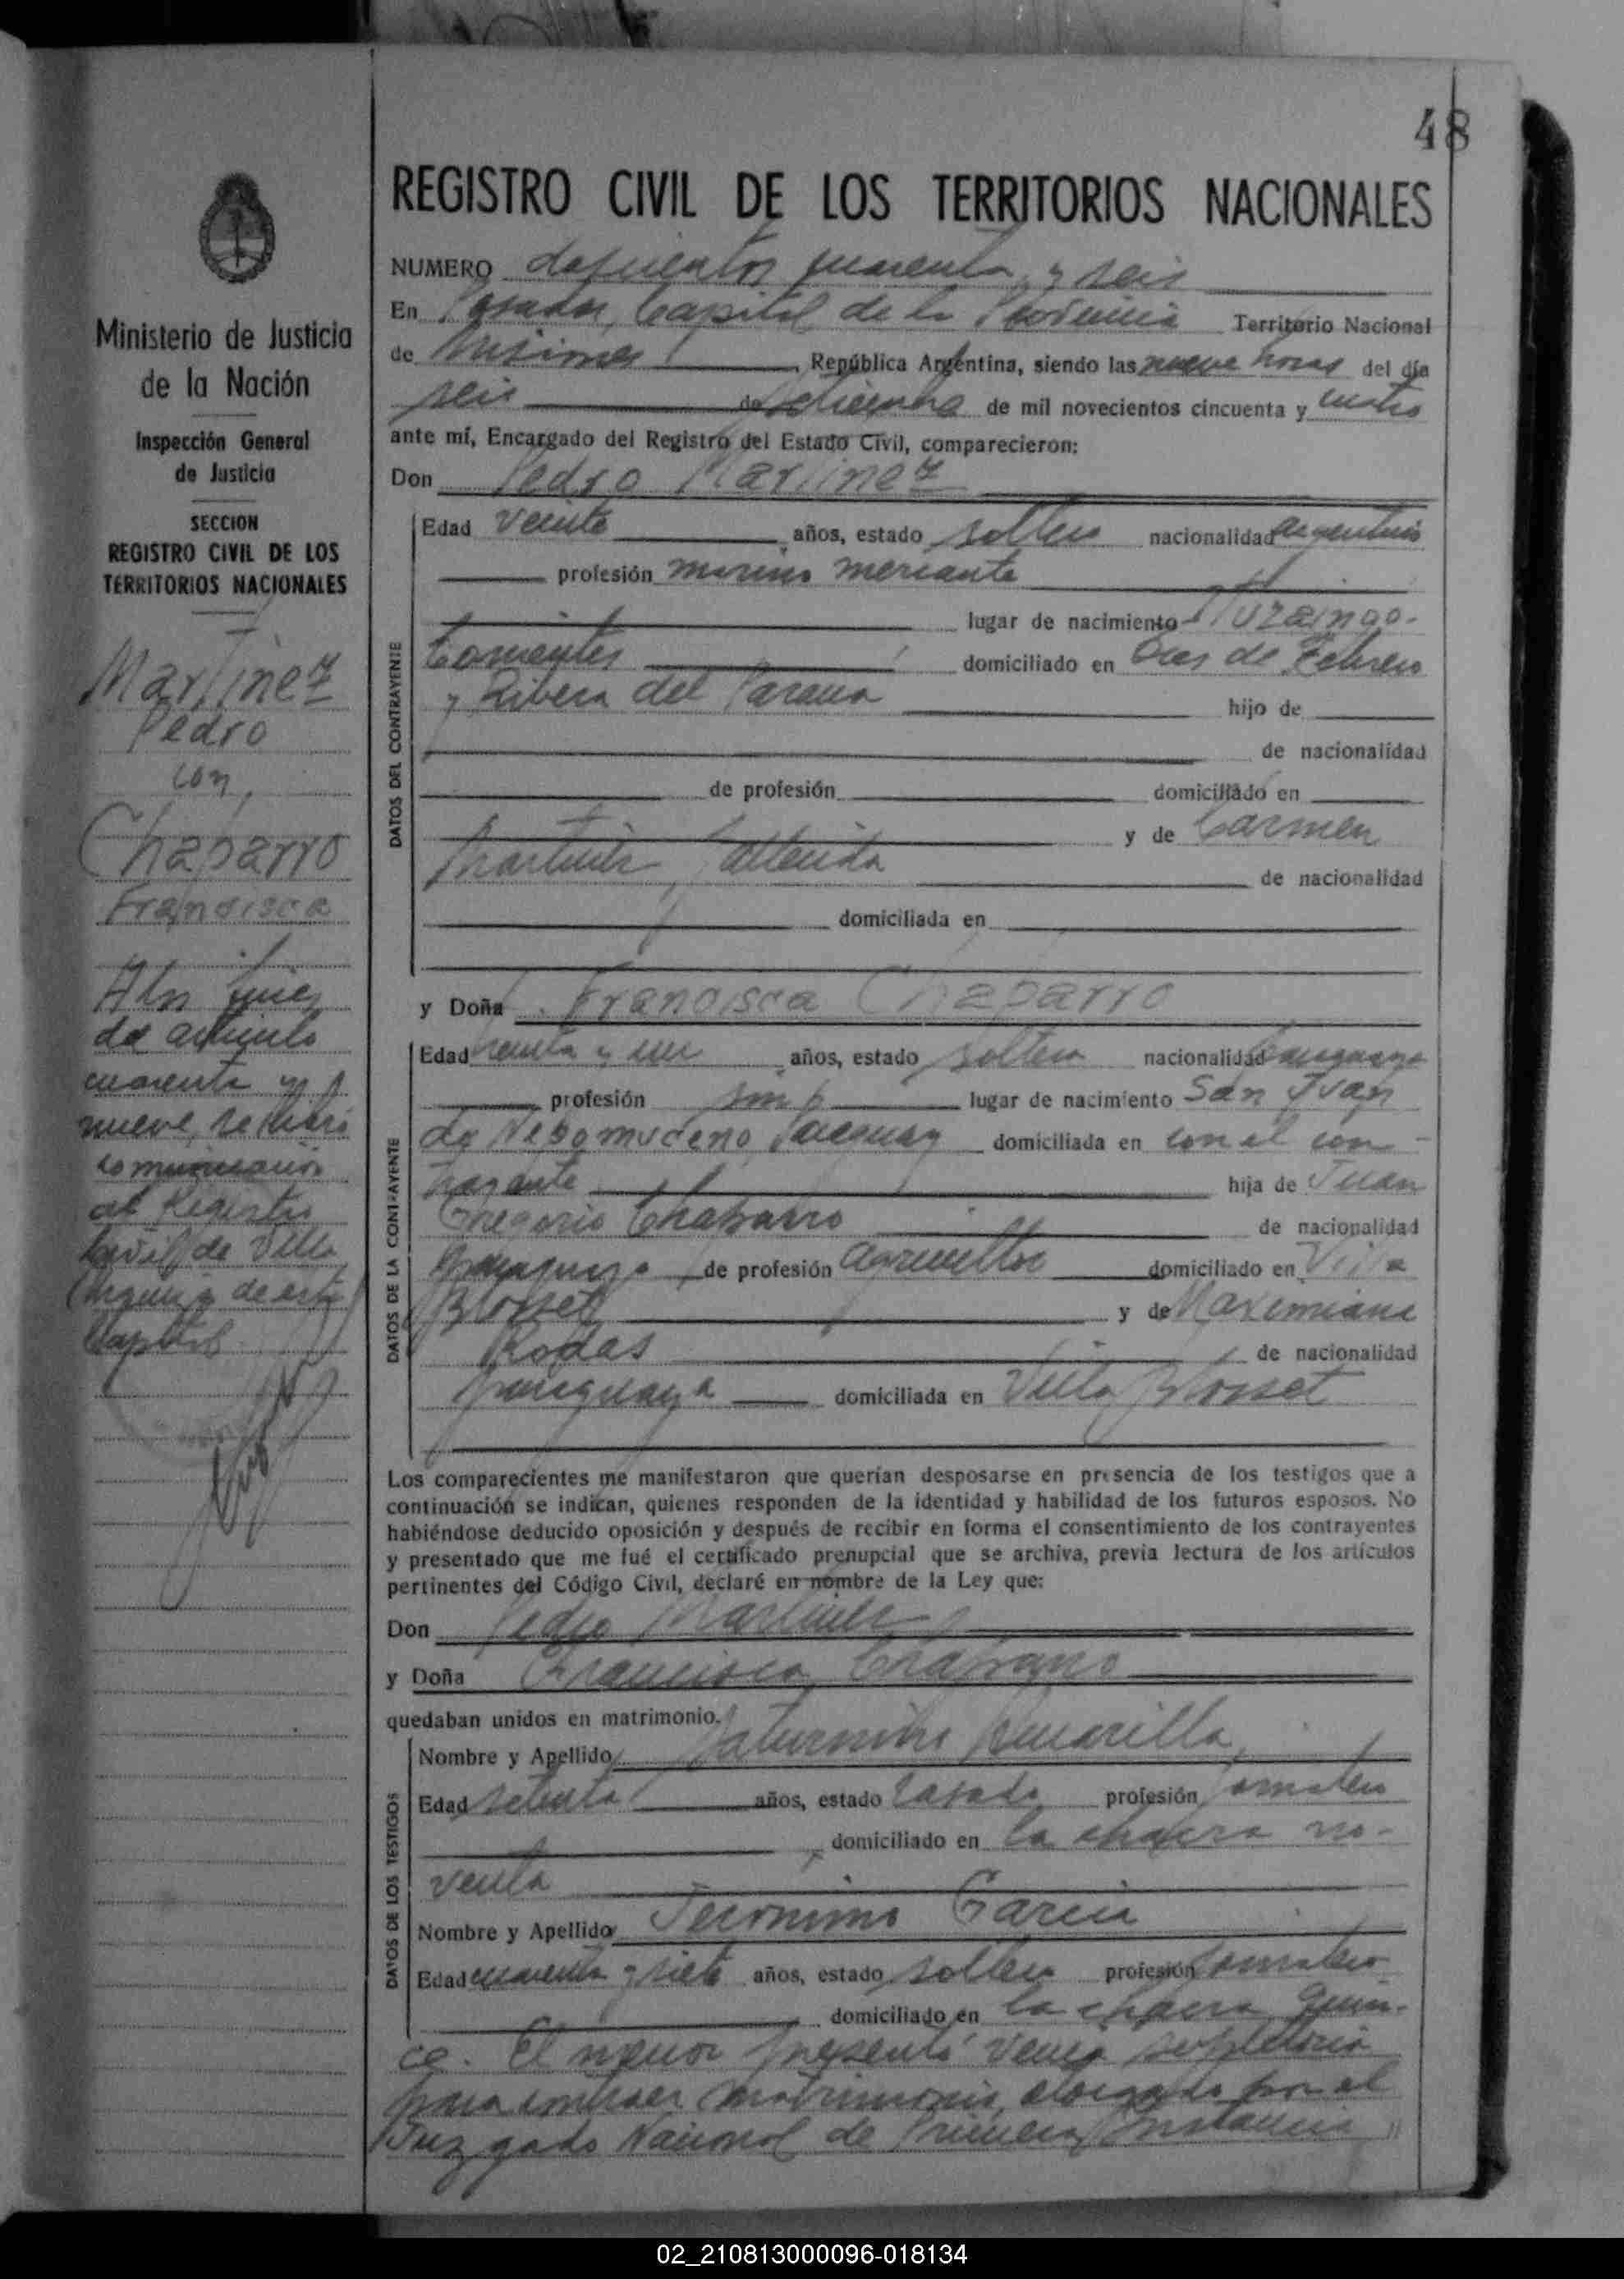 48
REGISTRO CIVIL DE LOS TERRITORIOS NACIONALES
Ministerio de Justicia
de la Nación
Inspección General
de Justicia
SECCION
REGISTRO CIVIL DE LOS
TERRITORIOS NACIONALES
Martinez
Pedro
con
Chaparro
Francisca
A los fines
del artículo
cuarenta y
nueve, se libró
comunicación
al Registro
Civil de Villa
Urquiza de esta
Capital
NUMERO doscientos cuarenta y seis
En Posadas, Capital de la Provincia Territorio Nacional
de Misiones República Argentina, siendo las nueve horas del día
seis de diciembre de mil novecientos cincuenta y cuatro
ante mí, Encargado del Registro del Estado Civil, comparecieron:
Don Pedro Martinez
DATOS DEL CONTRAYENTE
Edad veinte años, estado soltero nacionalidad argentino
profesión marino mercante
lugar de nacimiento Ituzaingo-
Corrientes domiciliado en Tres de Febrero
y Ribera del Parana hijo de
de nacionalidad
de profesión domiciliado en
y de Carmen
Martinez, fallecida de nacionalidad
domiciliada en
y Doña Francisca Chaparro
DATOS DE LA CONTRAYENTE
Edad treinta y un años, estado soltera nacionalidad paraguaya
profesión sin p lugar de nacimiento San Juan
de Nepomuceno, Paraguay domiciliada en con el con-
trayente hija de Juan
Gregorio Chaparro de nacionalidad
paraguayo de profesión agricultor domiciliado en Villa
Blosset y de Maximiana
Rodas de nacionalidad
paraguaya domiciliada en Villa Blosset
Los comparecientes me manifestaron que querían desposarse en presencia de los testigos que a
continuación se indican, quienes responden de la identidad y habilidad de los futuros esposos. No
habiéndose deducido oposición y después de recibir en forma el consentimiento de los contrayentes
y presentado que me fué el certificado prenupcial que se archiva, previa lectura de los artículos
pertinentes del Código Civil, declaré en nombre de la Ley que:
Don Pedro Martinez
y Doña Francisca Chaparro
quedaban unidos en matrimonio.
DATOS DE LOS TESTIGOS
Nombre y Apellido Saturnino Amarilla
Edad setenta años, estado casado profesión jornalero
domiciliado en la chacra no-
venta
Nombre y Apellido Jeronimo Garcia
Edad cuarenta y siete años, estado soltero profesión jornalero
domiciliado en la chacra quin-
ce. El menor presentó venia supletoria
para contraer matrimonio, otorgada por el
Juzgado Nacional de Primera Instancia
02_210813000096-018134